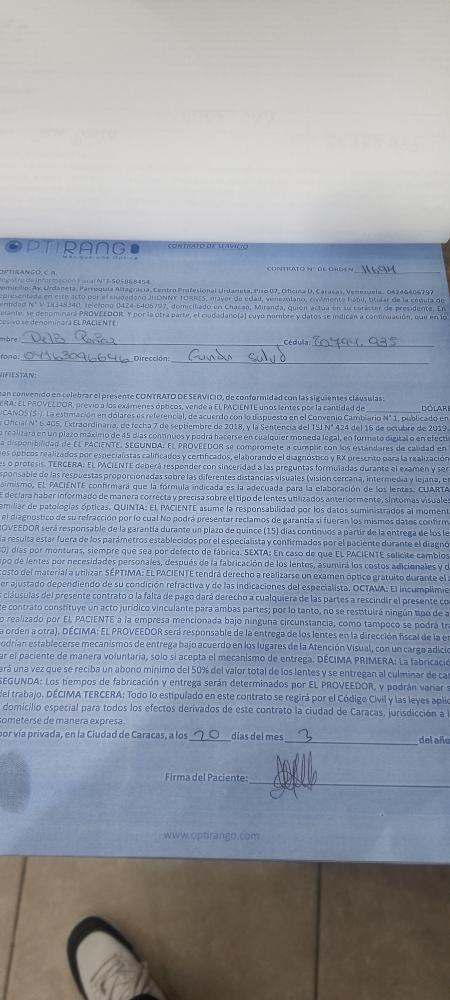 OPTIRANGO
CONTRATO DE SERVICIO
OPTIRANGO, C.A. CONTRATO N° DE ORDEN
Registro de Información Fiscal N° J-505868454
Domicilio: Av. Urdaneta, Parroquia Altagracia, Centro Profesional Urdaneta, Piso 07, Oficina D, Caracas, Venezuela. 04246406797
epresentada en este acto por el ciudadano JHONNY TORRES, mayor de edad, venezolano, civilmente hábil, titular de la cédula de
entidad N° V-18148340, teléfono 0424-6406797, domiciliado en Chacao, Miranda, quien actúa en su carácter de presidente. En
elante, se denominará PROVEEDOR. Y por la otra parte, el ciudadano(a) cuyo nombre y datos se indican a continuación, que en lo
cesivo se denominará EL PACIENTE:
mbre: Cédula:
fono: Dirección:
NIFIESTAN:
han convenido en celebrar el presente CONTRATO DE SERVICIO, de conformidad con las siguientes cláusulas:
ERA: EL PROVEEDOR, previo a los exámenes ópticos, vende a EL PACIENTE unos lentes por la cantidad de DÓLARE
ICANOS ($-). La estimación en dólares es referencial, de acuerdo con lo dispuesto en el Convenio Cambiario N° 1, publicado en
a Oficial N° 6.405, Extraordinaria, de fecha 7 de septiembre de 2018, y la Sentencia del TSJ N° 424 del 16 de octubre de 2019.
e realizará en un plazo máximo de 45 días continuos y podrá hacerse en cualquier moneda legal, en formato digital o en efecti
a disponibilidad de EL PACIENTE. SEGUNDA: EL PROVEEDOR se compromete a cumplir con los estándares de calidad en
nes ópticos realizados por especialistas calificados y certificados, elaborando el diagnóstico y RX prescrito para la realización
s o prótesis. TERCERA: EL PACIENTE deberá responder con sinceridad a las preguntas formuladas durante el examen y ser
sponsable de las respuestas proporcionadas sobre las diferentes distancias visuales (visión cercana, intermedia y lejana, en
simismo, EL PACIENTE confirmará que la fórmula indicada es la adecuada para la elaboración de los lentes. CUARTA
E declara haber informado de manera correcta y precisa sobre el tipo de lentes utilizados anteriormente, síntomas visuales
amiliar de patologías ópticas. QUINTA: EL PACIENTE asume la responsabilidad por los datos suministrados al moment
el diagnostico de su refracción por lo cual No podrá presentar reclamos de garantía si fueran los mismos datos confirm
OVEEDOR será responsable de la garantía durante un plazo de quince (15) días continuos a partir de la entrega de los le
la resulta estar fuera de los parámetros establecidos por el especialista y confirmados por el paciente durante el diagnó
0) días por monturas, siempre que sea por defecto de fábrica. SEXTA: En caso de que EL PACIENTE solicite cambios
tipo de lentes por necesidades personales, después de la fabricación de los lentes, asumirá los costos adicionales y d
costo del material a utilizar. SÉPTIMA: EL PACIENTE tendrá derecho a realizarse un examen óptico gratuito durante el
er ajustado dependiendo de su condición refractiva y de las indicaciones del especialista. OCTAVA: El incumplimie
s cláusulas del presente contrato o la falta de pago dará derecho a cualquiera de las partes a rescindir el presente co
te contrato constituye un acto jurídico vinculante para ambas partes; por lo tanto, no se restituirá ningún tipo de a
o realizado por EL PACIENTE a la empresa mencionada bajo ninguna circunstancia, como tampoco se podrá tra
a orden a otra). DÉCIMA: EL PROVEEDOR será responsable de la entrega de los lentes en la dirección fiscal de la em
podrían establecerse mecanismos de entrega bajo acuerdo en los lugares de la Atención Visual, con un cargo adicio
ar el paciente de manera voluntaria, solo si acepta el mecanismo de entrega. DÉCIMA PRIMERA: La fabricació
ará una vez que se reciba un abono mínimo del 50% del valor total de los lentes y se entregan al culminar de can
SEGUNDA: Los tiempos de fabricación y entrega serán determinados por EL PROVEEDOR, y podrán variar s
del trabajo. DÉCIMA TERCERA: Todo lo estipulado en este contrato se regirá por el Código Civil y las leyes aplic
domicilio especial para todos los efectos derivados de este contrato la ciudad de Caracas, jurisdicción a l
someterse de manera expresa.
por vía privada, en la Ciudad de Caracas, a los 20 días del mes 3 del año
Firma del Paciente:
www.optirango.com